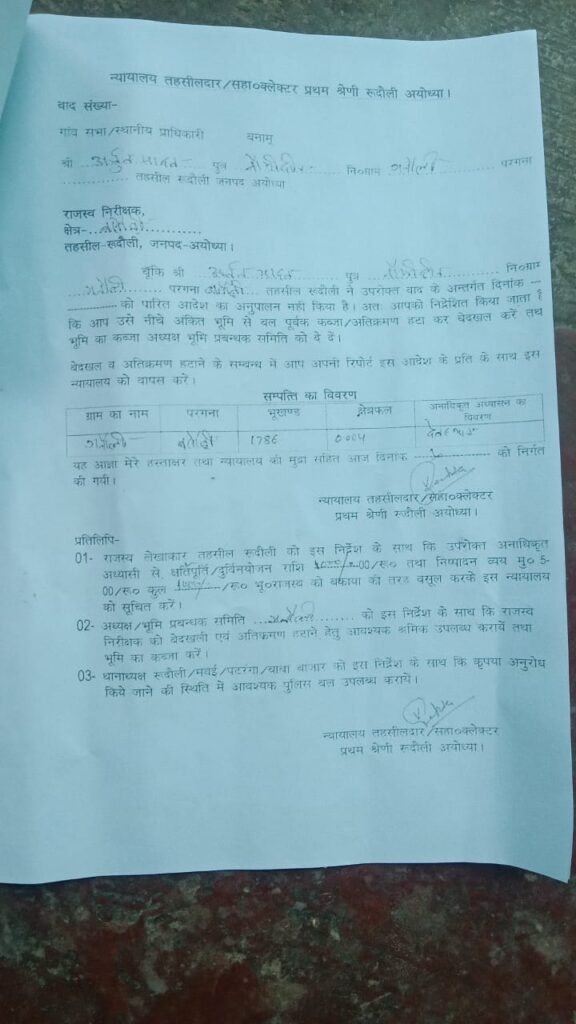 न्यायालय तहसीलदार/सहा०क्लेक्टर प्रथम श्रेणी रूदौली अयोध्या।
वाद संख्या-
गांव सभा/स्थानीय प्राधिकारी बनाम्
श्री पुत्र नि०ग्राम परगना
.............. तहसील रूदौली जनपद अयोध्या
राजस्व निरीक्षक,
क्षेत्र-
तहसील-रूदौली, जनपद-अयोध्या।
चूंकि श्री पुत्र नि०ग्राम
परगना तहसील रूदौली ने उपरोक्त वाद के अन्तर्गत दिनांक
को पारित आदेश का अनुपालन नही किया है। अतः आपको निर्देशित किया जाता है
कि आप उसे नीचे अंकित भूमि से बल पूर्वक कब्जा/अतिक्रमण हटा कर बेदखल करें तथ
भूमि का कब्जा अध्यक्ष भूमि प्रबन्धक समिति को दे दें।
बेदखल व अतिक्रमण हटाने के सम्बन्ध में आप अपनी रिपोर्ट इस आदेश के प्रति के साथ इस
न्यायालय को वापस करें।
सम्पत्ति का विवरण
ग्राम का नाम परगना भूखण्ड क्षेत्रफल अनाधिकृत अध्यासन का विवरण
1786 0.004
यह आज्ञा मेरे हस्ताक्षर तथा न्यायालय की मुद्रा सहित आज दिनांक को निर्गत
की गयी।
न्यायालय तहसीलदार/सहा०क्लेक्टर
प्रथम श्रेणी रूदौली अयोध्या।
प्रतिलिपि-
01- राजस्व लेखाकार तहसील रूदौली को इस निर्देश के साथ कि उपरोक्त अनाधिकृत
अध्यासी से क्षतिपूर्ति/दुर्विनयोजन राशि 00/रू० तथा निष्पादन व्यय मु० 5-
00/रू० कुल /रू० भू०राजस्व को बकाया की तरह वसूल करके इस न्यायालय
को सूचित करें।
02- अध्यक्ष/भूमि प्रबन्धक समिति को इस निर्देश के साथ कि राजस्व
निरीक्षक को बेदखली एवं अतिक्रमण हटाने हेतु आवश्यक श्रमिक उपलब्ध करायें तथा
भूमि का कब्जा करें।
03- थानाध्यक्ष रूदौली/मवई/पटरंगा/बाबा बाजार को इस निर्देश के साथ कि कृपया अनुरोध
किये जाने की स्थिति में आवश्यक पुलिस बल उपलब्ध करायें।
न्यायालय तहसीलदार/सहा०क्लेक्टर
प्रथम श्रेणी रूदौली अयोध्या।